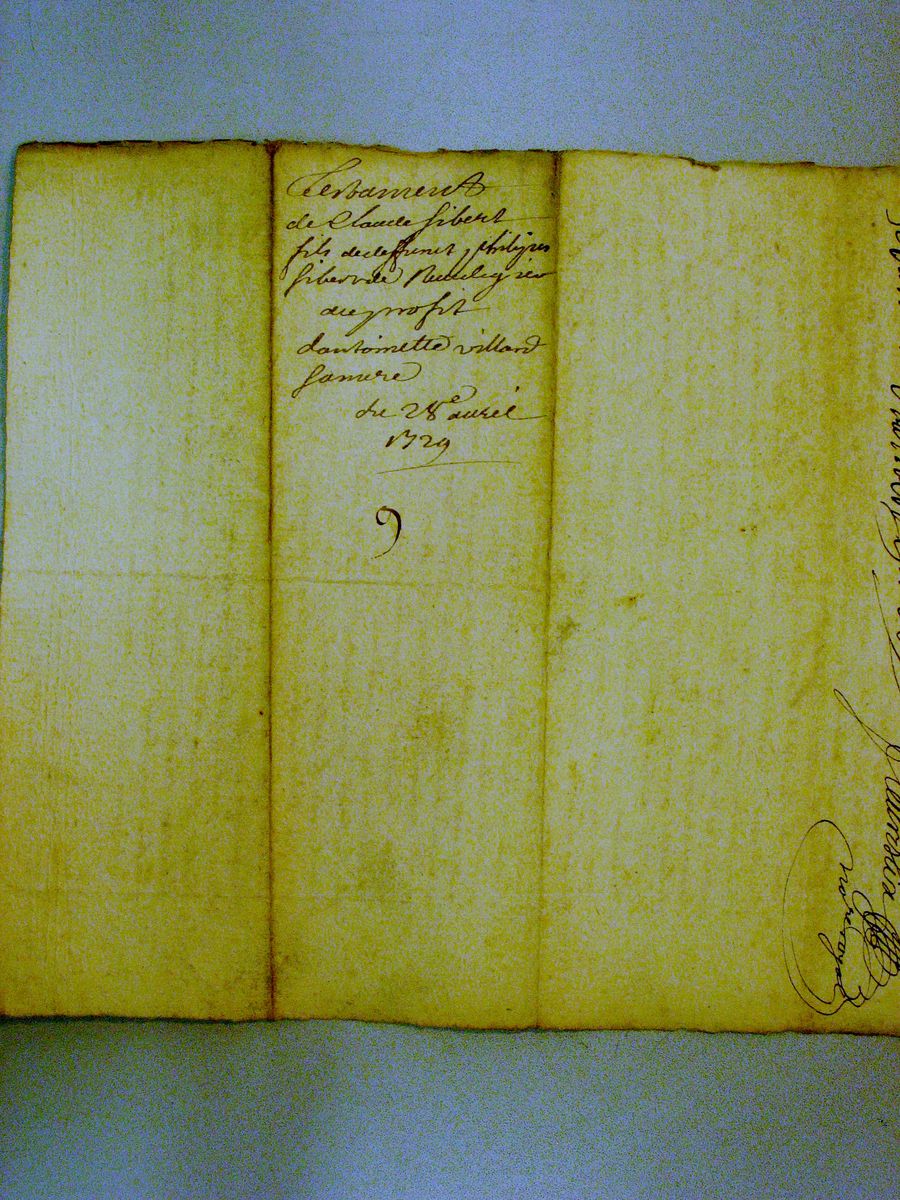 Testament
de Claude Gibert
fils de deffunct
Gibert de
au profit
dantoinette villard
sa mere
du 28e avril
1729
9
no.re royal